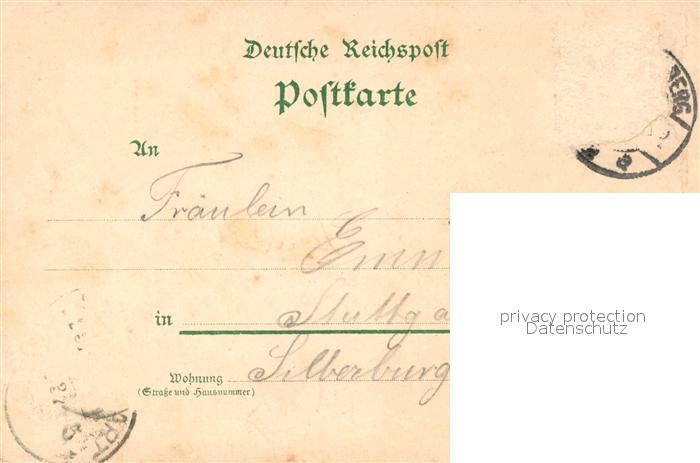 Deutsche Reichspost
Postkarte
BERG
An
Fräulein
Emm
in Stuttga
privacy protection
Datenschutz
Wohnung Silberburg
(Straße und Hausnummer)